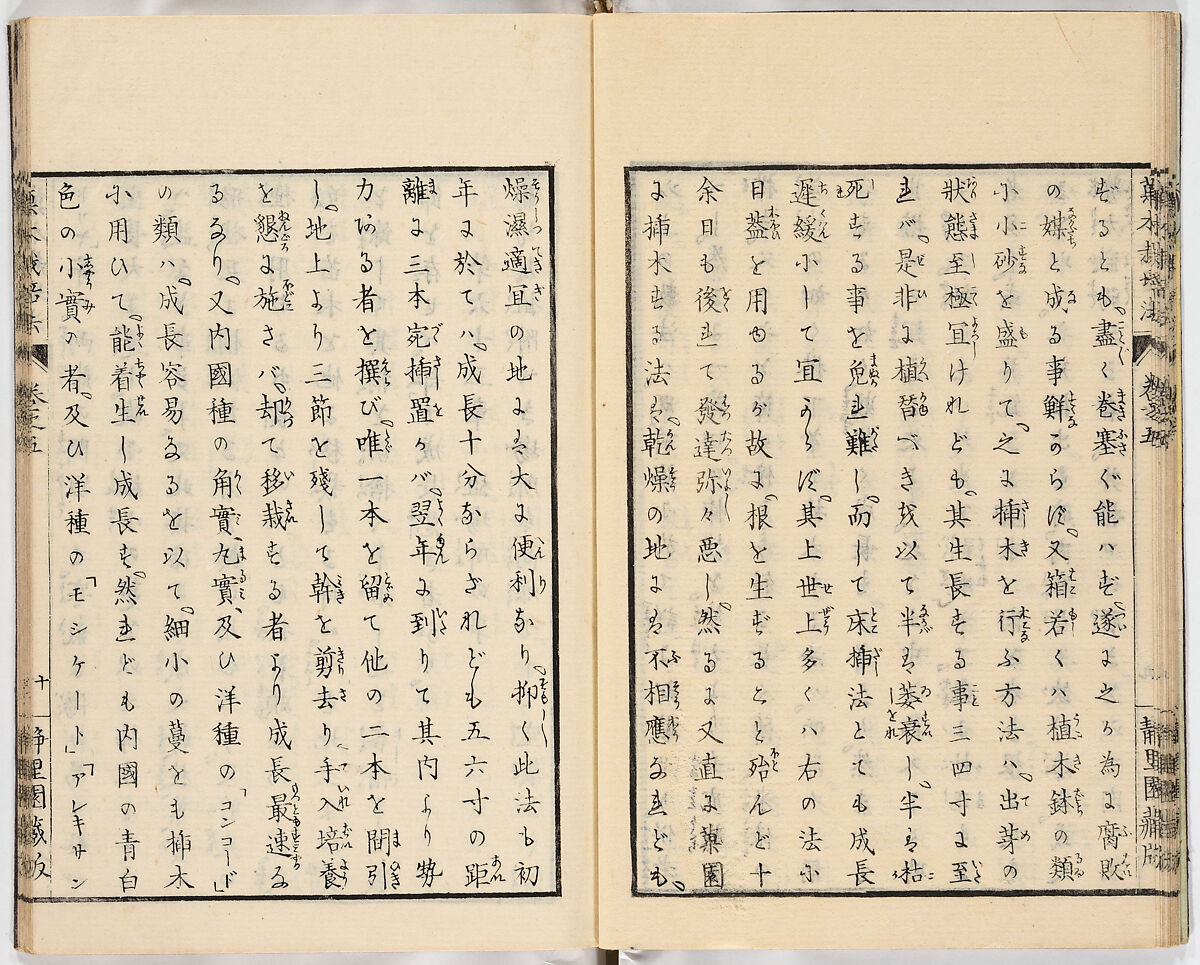 菓木栽培法　卷之五　靜里園藏版
ざるとも、盡く卷塞ぐ能ハず、遂に之が為に腐敗
の媒と成る事鮮からず、又箱若くハ植木鉢の類
に小砂を盛りて、之に挿木を行ふ方法ハ、出芽の
狀態至極宜けれども、其生長する事三四寸に至
れバ、是非に植替べきを以て半は萎衰し、半は枯
死する事を免れ難し、而して床挿法とても成長
遲緩にして宜からず、其上世上多くハ右の法に
日葢を用ゆるが故に、根を生ずること殆んど十
余日も後れて發達弥々惡し、然るに又直に菓園
に挿木する法は、乾燥の地には不相應なれども、
燥濕適宜の地には大に便利なり、抑々此法も初
年に於てハ、成長十分ならざれども五六寸の距
離に三本宛挿置かバ、翌年に到りて其内より勢
力ある者を撰び、唯一本を留て他の二本を間引
し、地上より三節を殘して幹を剪去り、手入培養
を懇に施さバ、却て移栽する者より成長最速な
るなり、又内國種の角實、丸實、及ひ洋種の「コンコード」
の類ハ、成長容易なるを以て、細小の蔓をも挿木
に用ひて、能着生し成長す、然れども内國の青白
色の小實の者、及ひ洋種の「モシケート」「アレキサン
菓木栽培法　卷之五　十　靜里園藏版